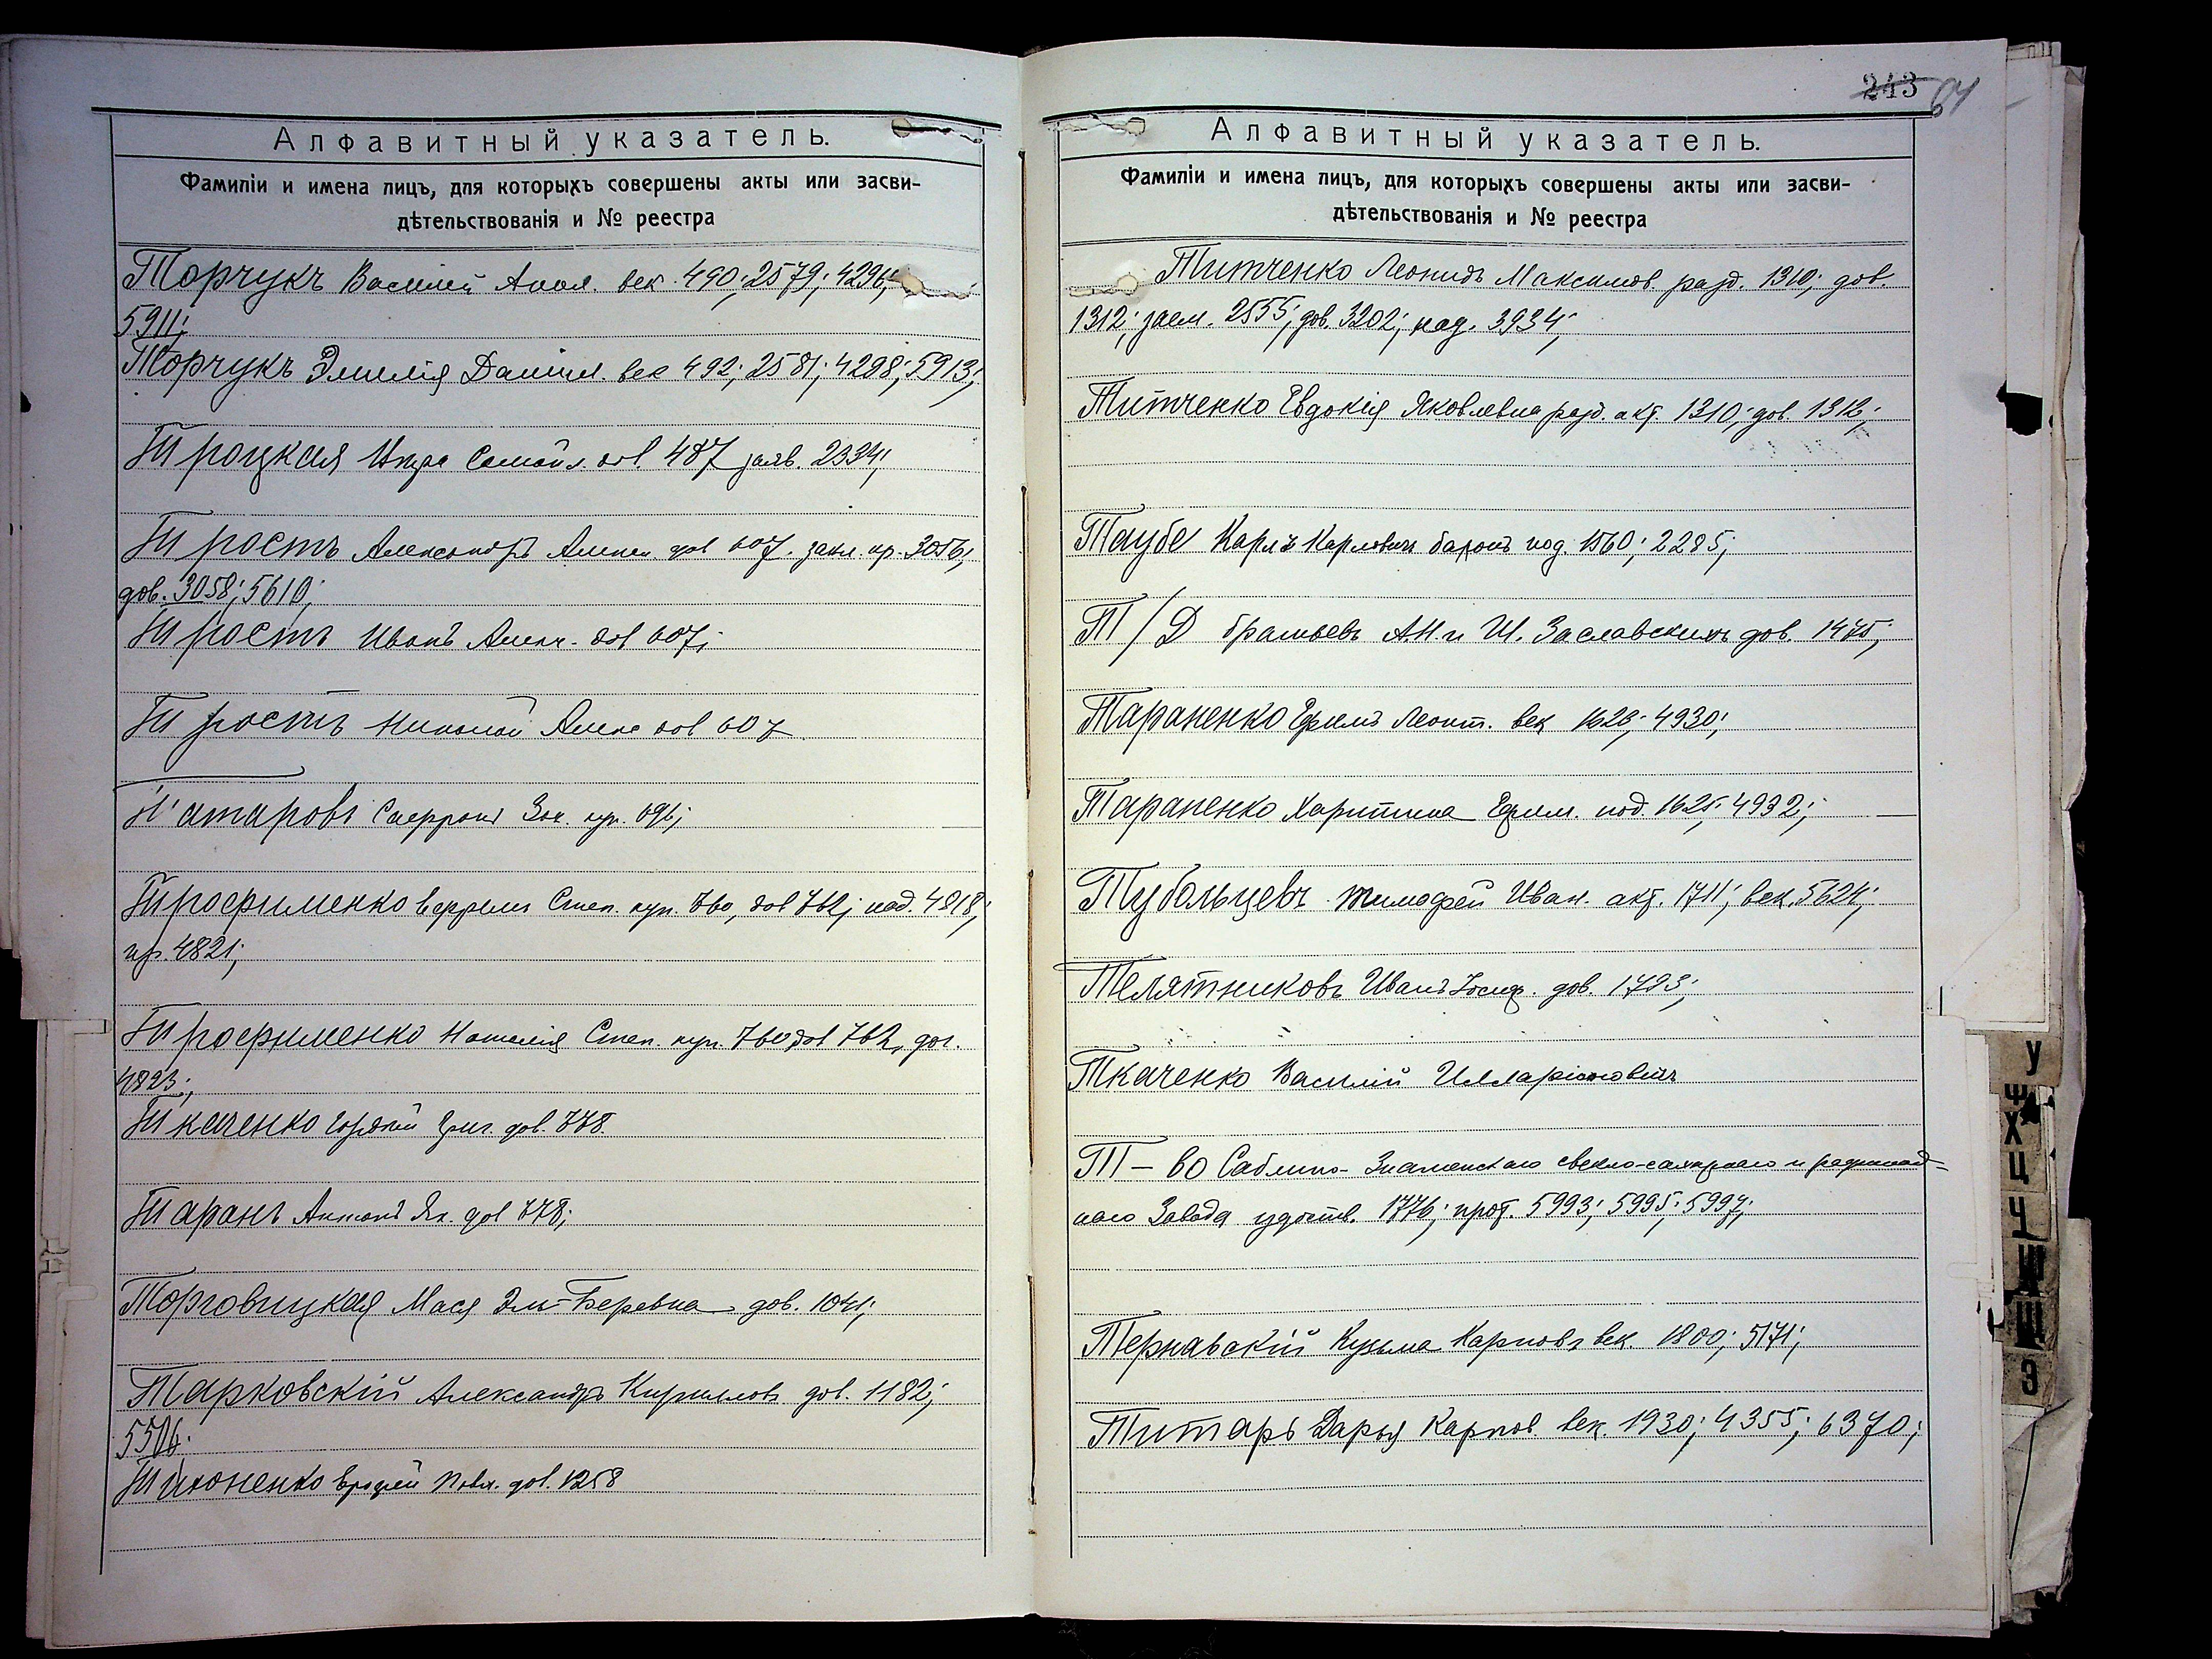 Алфавитный указатель.
Фамиліи и имена лицъ, для которыхъ совершены акты или засви-
дѣтельствованія и № реестра
Торчукъ Василій век. 490; 2579; 4296;
5911;
Торчукъ Эмилія Даніил. век 492; 2581; 4298; 5913;
Троцкая Самойл. дов. 487 заяв. 2334;
Трость Александръ дов 607. закл. пр. 3056;
дов. 3058; 5610;
Трость Иванъ дов 607;
Трость Николай дов 607
Татаровъ кр. 696;
Трофименко Степ. куп. 760, дов 762; под. 4818;
пр. 4821;
Трофименко Наталія Степ. куп. 760 дов 762, дог.
4823;
Ткаченко Григ. дов. 778.
Таранъ Антонъ Як. дов 778;
Торговицкая Мася Эль-Беревна дов. 1041;
Тарковскій Александръ Кириллов дов. 1182;
5506;
Тихоненко Павл. дов. 1258
243 64
Алфавитный указатель.
Фамиліи и имена лицъ, для которыхъ совершены акты или засви-
дѣтельствованія и № реестра
Титченко Леонидъ Максимов. разд. 1310; дов.
1312; заем. 2555; дов. 3202; 3934;
Титченко Евдокія Яковлевна разд. акт. 1310; дов. 1312;
Таубе Карлъ Карлович баронъ под. 1560; 2285;
Т/Д братьевъ А.Н. и Ш. Заславскихъ дов. 1475;
Тараненко Ефимъ Леонт. век 1623; 4930;
Тараненко Харитина Ефим. под. 1625; 4932;
Тубольцевъ Тимофей Иван. акт. 1711; век. 5624;
Телятниковъ Иванъ Іосиф. дов. 1723;
Ткаченко Василій Илларіонович
Т-во Саблино-Знаменскаго свекло-сахарнаго и рафинад-
наго Завода удостов. 1776; прот. 5993; 5995; 5997;
Тернавскій Кузьма Карповъ век. 1800; 5171;
Титарь Дарья Карпов. век. 1930; 4355; 6370;
У
Ф
Х
Ц
Ч
Ш
Щ
Э